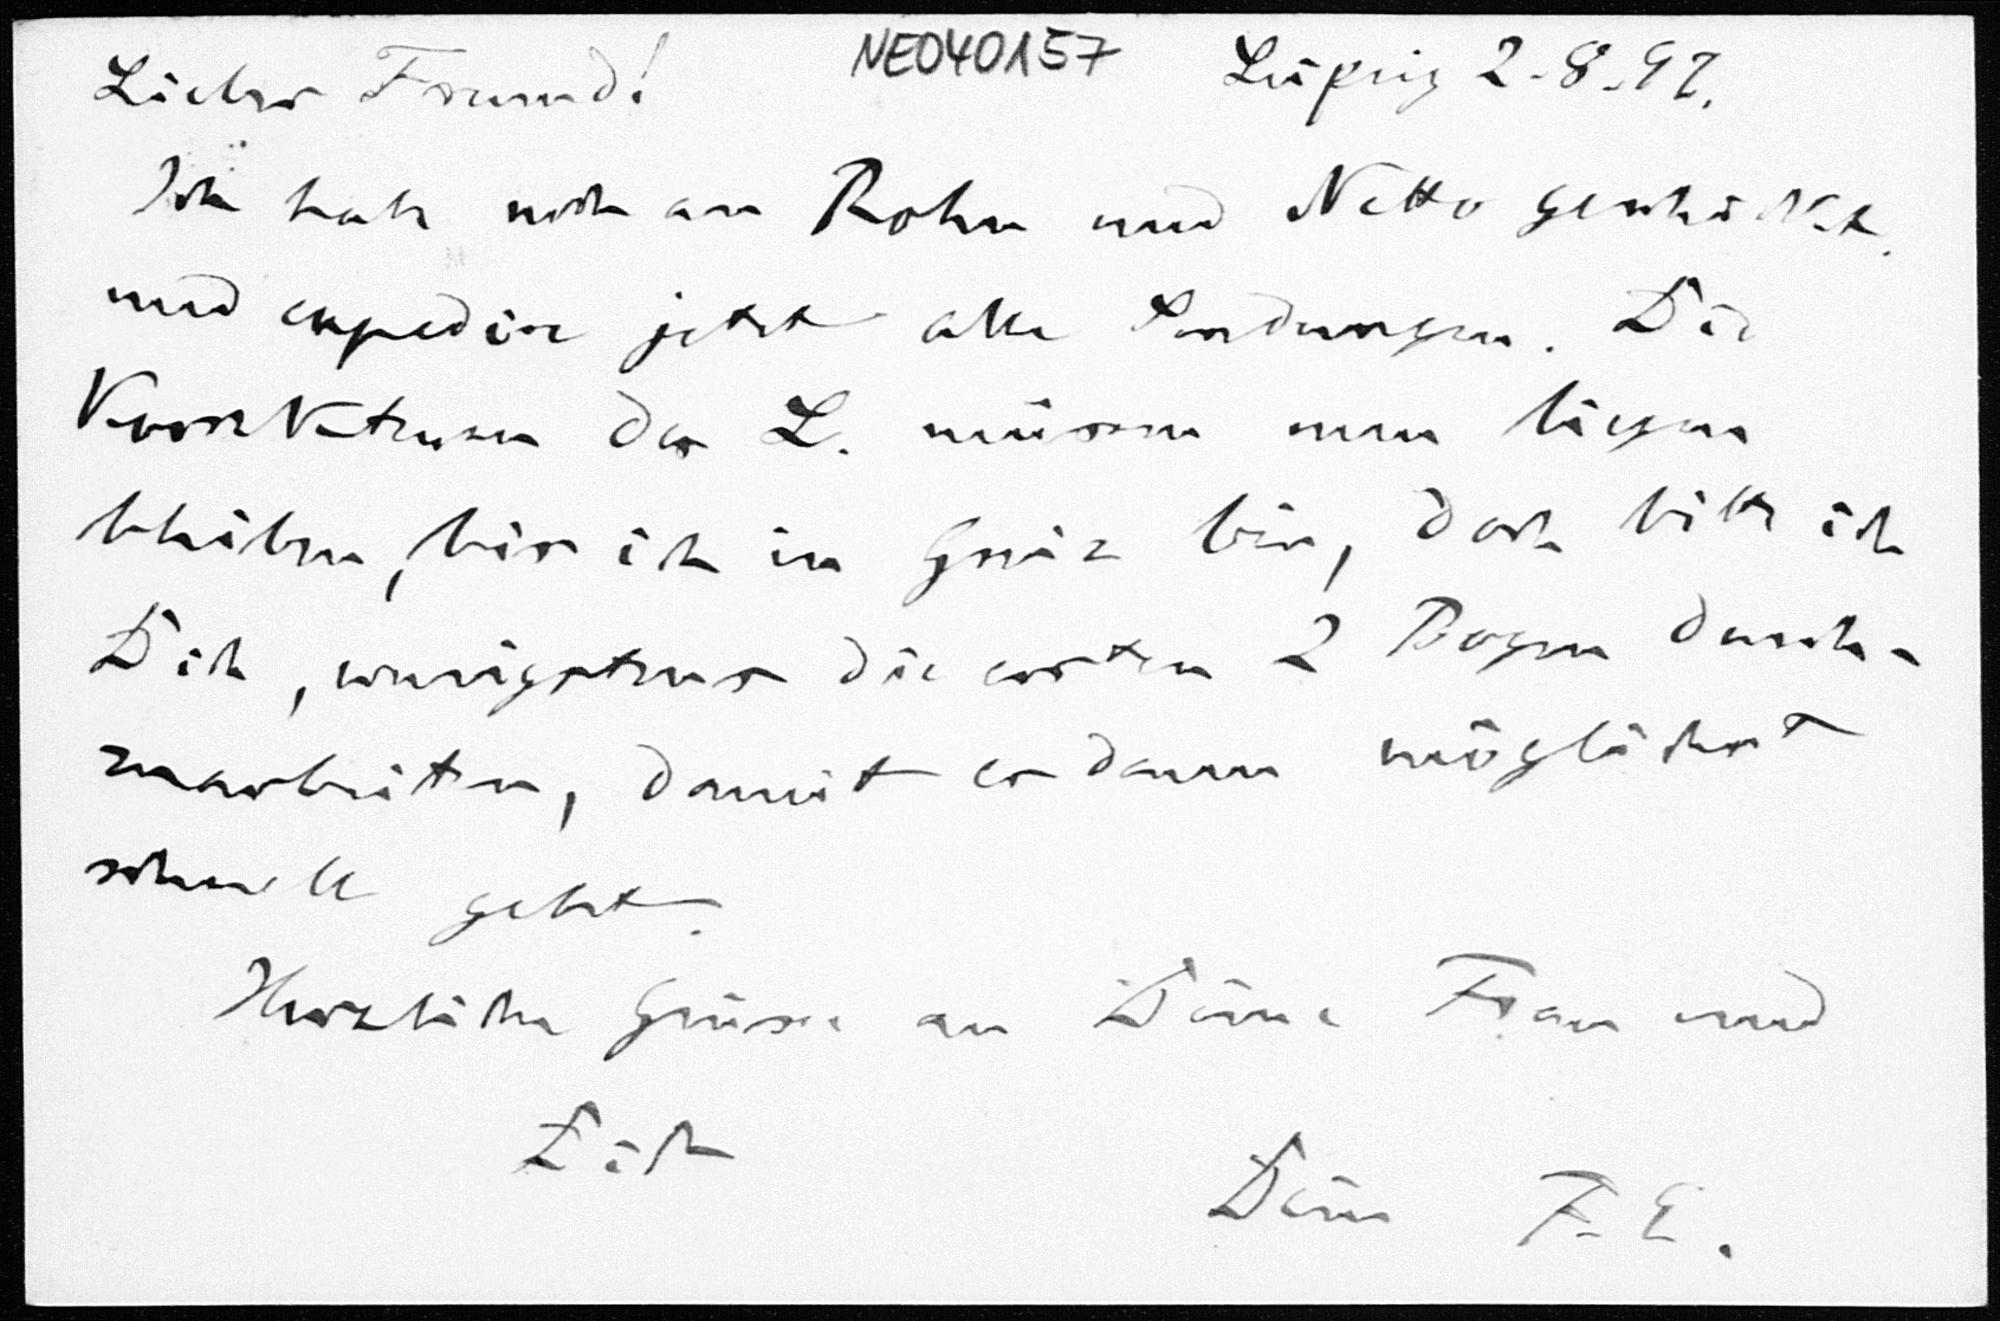 NE040157
Lieber Freund! Leipzig 2.8.97.
Ich habe noch an Rohn und Netto geschickt
und expedire jetzt alle Sendungen. Die
Korrekturen der L. müssen nun liegen
bleiben, bis ich in Greiz bin, doch bitte ich
Dich, wenigstens die ersten 2 Bogen durch-
zuarbeiten, damit es dann möglichst
schnell geht.
Herzliche Grüsse an Deine Frau und
Dich
Dein F. E.